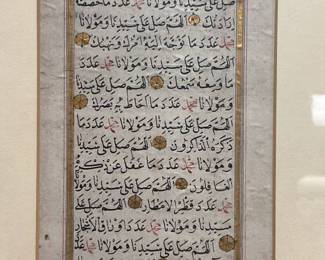 صل على سيدنا ومولانا محمد عدد ما خصصته
ارادتك اللهم صل على سيدنا ومولانا
محمد عدد ما توجه اليه امرك ونهيك
اللهم صل على سيدنا ومولانا محمد عدد
ما وسعه سمعك اللهم صل على سيدنا
ومولانا محمد عدد ما احاط به بصرك
اللهم صل على سيدنا ومولانا محمد عدد ما
ذكره الذاكرون اللهم صل على سيدنا
ومولانا محمد عدد ما غفل عن ذكره
الغافلون اللهم صل على سيدنا ومولانا
محمد عدد قطر الامطار اللهم صل على
سيدنا ومولانا محمد عدد اوراق الاشجار
اللهم صل على سيدنا ومولانا محمد